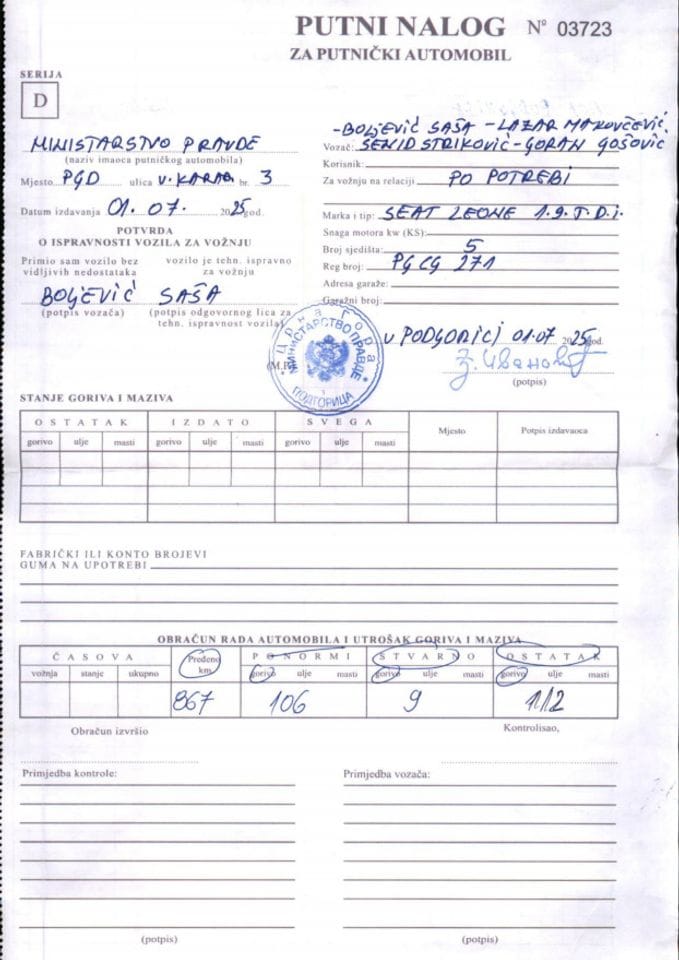 PUTNI NALOG Nº 03723
ZA PUTNIČKI AUTOMOBIL
SERIJA
D
MINISTARSTVO PRAVDE
(naziv imaoca putničkog automobila)
Mjesto PGD ulica V. KARAĐ br. 3
Datum izdavanja 01.07. 2025 god.
POTVRDA
O ISPRAVNOSTI VOZILA ZA VOŽNJU
Primio sam vozilo bez vidljivih nedostataka
vozilo je tehn. ispravno za vožnju
BOLJEVIĆ SAŠA
(potpis vozača) (potpis odgovornog lica za tehn. ispravnost vozila)
- BOLJEVIĆ SAŠA - LAZAR MAKOVČEVIĆ
Vozač: SENID STRIKOVIĆ - GORAN GOŠOVIĆ
Korisnik:
Za vožnju na relaciji PO POTREBI
Marka i tip: SEAT LEONE 1.9. T.D.i.
Snaga motora kw (KS):
Broj sjedišta: 5
Reg broj: PG CG 271
Adresa garaže:
Garažni broj:
U PODGORICI 01.07 2025 god.
(M.P.)
Црна Гора
МИНИСТАРСТВО ПРАВДЕ
ПОДГОРИЦА
(potpis)
STANJE GORIVA I MAZIVA
OSTATAK IZDATO SVEGA Mjesto Potpis izdavaoca
gorivo ulje masti gorivo ulje masti gorivo ulje masti
FABRIČKI ILI KONTO BROJEVI
GUMA NA UPOTREBI
OBRAČUN RADA AUTOMOBILA I UTROŠAK GORIVA I MAZIVA
ČASOVA Pređeno km. PO NORMI STVARNO OSTATAK
vožnja stanje ukupno gorivo ulje masti gorivo ulje masti gorivo ulje masti
867 106 9 1/2
Obračun izvršio Kontrolisao,
Primjedba kontrole: Primjedba vozača:
(potpis) (potpis)